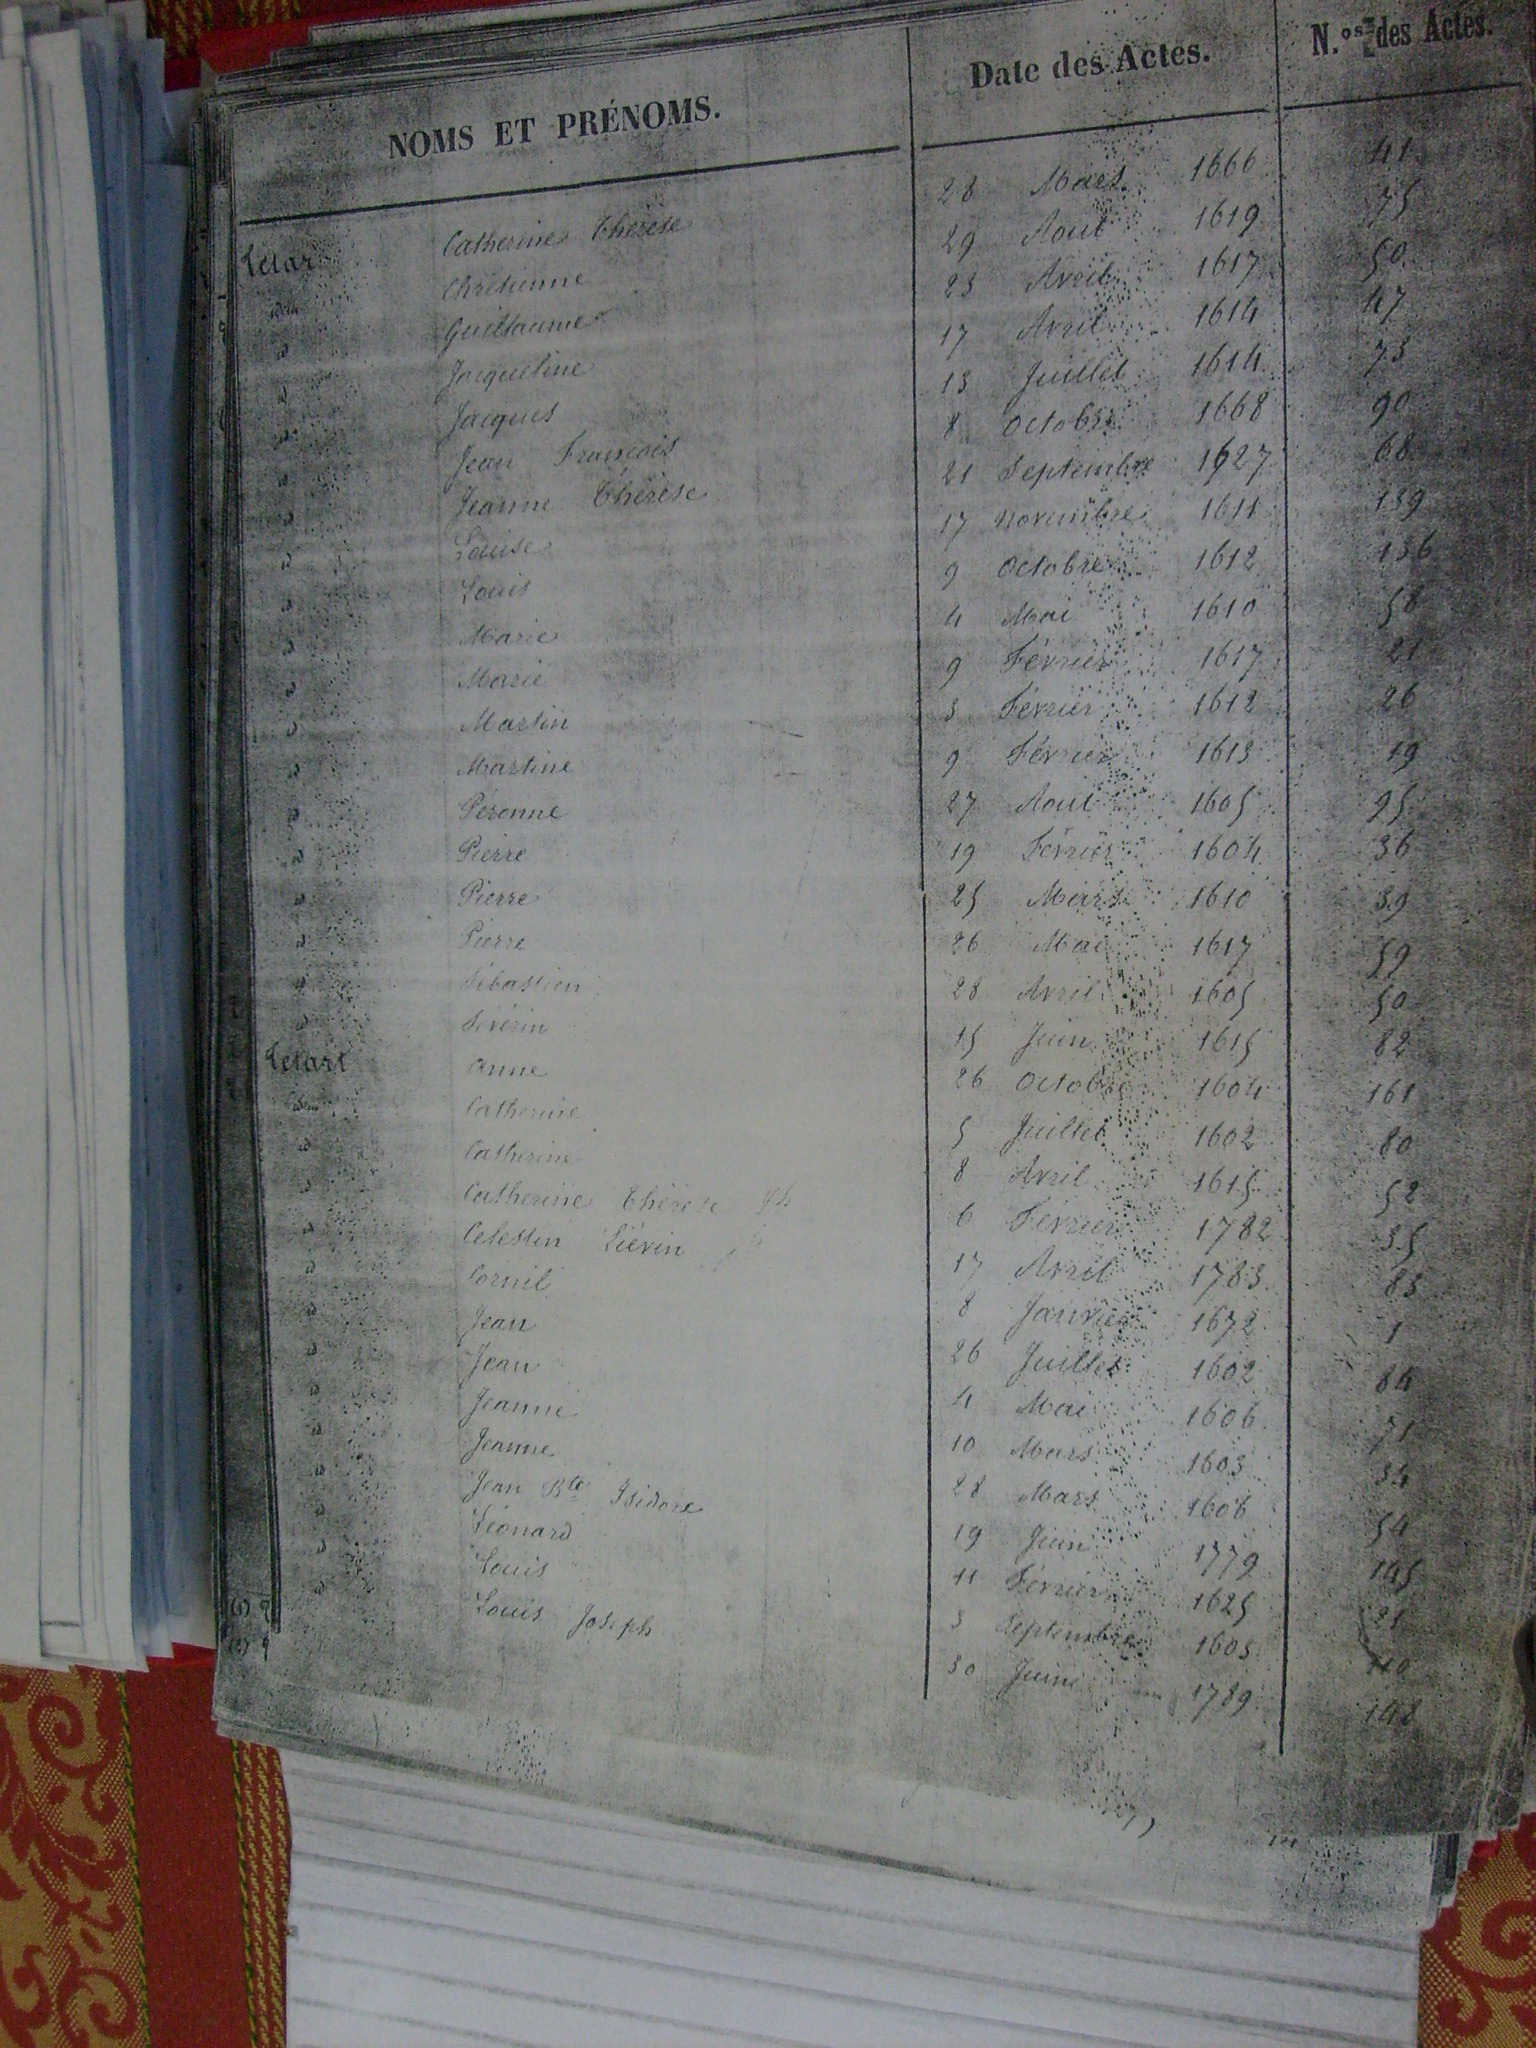 NOMS ET PRÉNOMS. Date des Actes. N.os des Actes.
Letart Catherine Thérèse 28 Mars 1666 41
idem Chrétienne 29 Aout 1619 75
id Guillaume 23 Avril 1617 50
id Jacqueline 17 Avril 1614 47
id Jacques 13 Juillet 1614 73
id Jean François 8 Octobre 1668 90
id Jeanne Thérèse 21 Septembre 1627 68
id Louise 17 Novembre 1611 139
id Louis 9 Octobre 1612 136
id Marie 4 Mai 1610 58
id Marie 9 Février 1617 21
id Martin 3 Février 1612 26
id Martine 9 Février 1613 19
id Péronne 27 Aout 1605 95
id Pierre 19 Février 1604 36
id Pierre 25 Mars 1610 39
id Pierre 26 Mai 1617 59
id Sébastien 28 Avril 1605 50
id Sévérin 15 Juin 1615 82
Letart Anne 26 Octobre 1604 161
idem Catherine 5 Juillet 1602 80
id Catherine 8 Avril 1615 52
id Catherine Thérèse 6 Février 1782 35
id Celestin Liévin 17 Avril 1783 83
id Cornil 8 Janvier 1672 1
id Jean 26 Juillet 1602 84
id Jean 4 Mai 1606 71
id Jeanne 10 Mars 1603 34
id Jeanne 28 Mars 1606 54
id Jean Bte Isidore 19 Juin 1779 145
id Léonard 11 Février 1625 21
id Louis 3 Septembre 1603 110
id Louis Joseph 30 Juin 1789 148